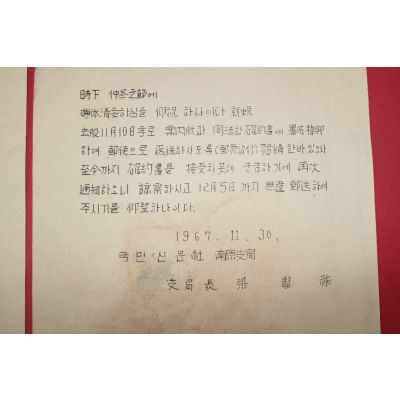 時下 仲冬之節에
尊体清安하심을 仰祝 하나이다 就煩
去般11月10日字로 案内狀과 同送한 確約書에 署名捺印
하여 郵便으로 返送하시도록(郵票 ) 懇請 한바 있으나
至今까지 確約書를 接受치못해 궁금하기에 再次
通知하오니 諒察하시고 12月5日 까지 無違 郵送하여
주시기를 仰望하나이다.
1967. 11. 30,
국민신문社 南原支局
支局長 梁